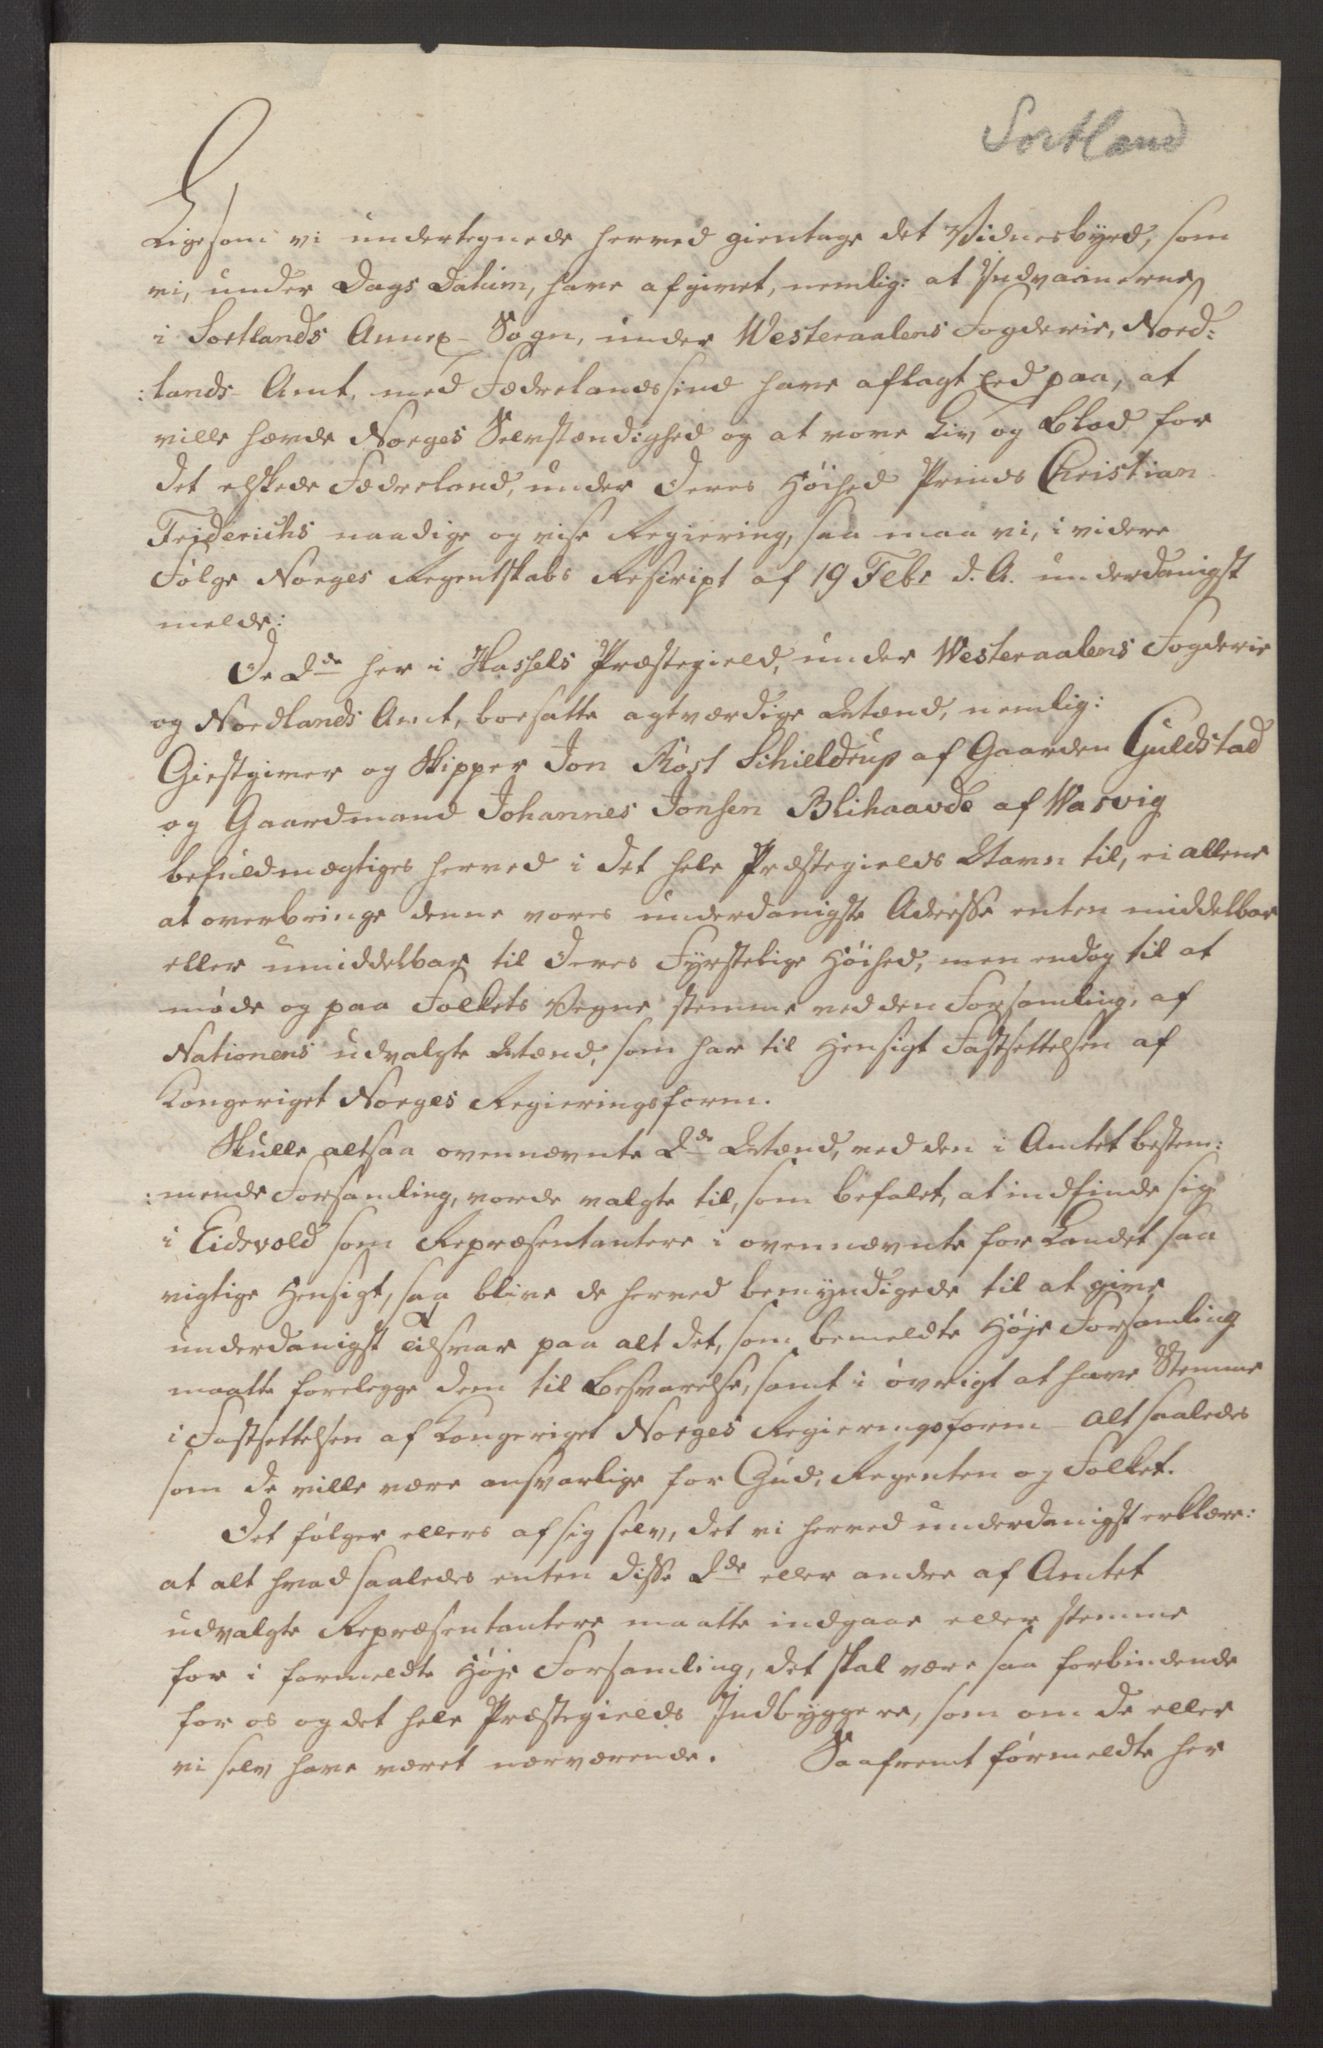 Sortland
Ligesom vi undertegnede herved gientage det Vidnesbyrd, som
vi, under Dags Datum, have afgivet, nemlig: at Indvaanerne
i Sortlands Annex-Sogn, under Westeraalens Fogderie, Nord:
:lands Amt, med Fædrelandssind have aflagt Eed paa, at
ville hævde Norges Selvstændighed og at vove Liv og Blod for
det elskede Fædreland, under Deres Høihed Prinds Christian
Friderichs naadige og vise Regiering, saa maa vi, i videre
Følge Norges Regentskabs Rescript af 19 Febr d. A. underdanigst
melde:
De 2de her i Hassels Præstegield, under Westeraalens Fogderie
og Nordlands Amt, boesatte agtværdige Mænd, nemlig:
Giestgiver og Skipper Jon Røst Schieldrup af Gaarden Guldstad
og Gaardmand Johannes Jonsen Blihaavde af Warvig
befuldmægtiges herved i det hele Præstegields Navn til, ei allene
at overbringe denne vores underdanigste Adresse enten middelbar
eller umiddelbar til Deres Fyrstelige Høihed, men endog til at
møde og paa Folkets Vegne stemme ved den Forsamling, af
Nationens udvalgte Mænd, som har til Hensigt Fastsettelsen af
Kongeriget Norges Regieringsform.
Skulle altsaa ovennævnte 2de Mænd, ved den i Amtet bestem:
:mende Forsamling, vorde valgte til, som befalet, at indfinde sig
i Eidsvold som Repræsentantere i ovennævnte for Landet saa
vigtige Hensigt, saa blive de herved bemyndigede til at give
underdanigst Tilsvar paa alt det, som bemeldte Høje Forsamling
maatte forelegge dem til Besvarelse, samt i øvrigt at have Stemme
i Fastsettelsen af Kongeriget Norges Regieringsform – alt saaledes
som de ville være ansvarlige for Gud, Regenten og Folket.
Det følger ellers af sig selv, det vi herved underdanigst erklære:
at alt hvad saaledes enten disse 2de eller andre af Amtet
udvalgte Repræsentantere maatte indgaae eller stemme
for i formeldte Høje Forsamling, det skal være saa forbindende
for os og det hele Præstegields Indbyggere, som om de eller
vi selv have været nærværende. Saafremt førmeldte her